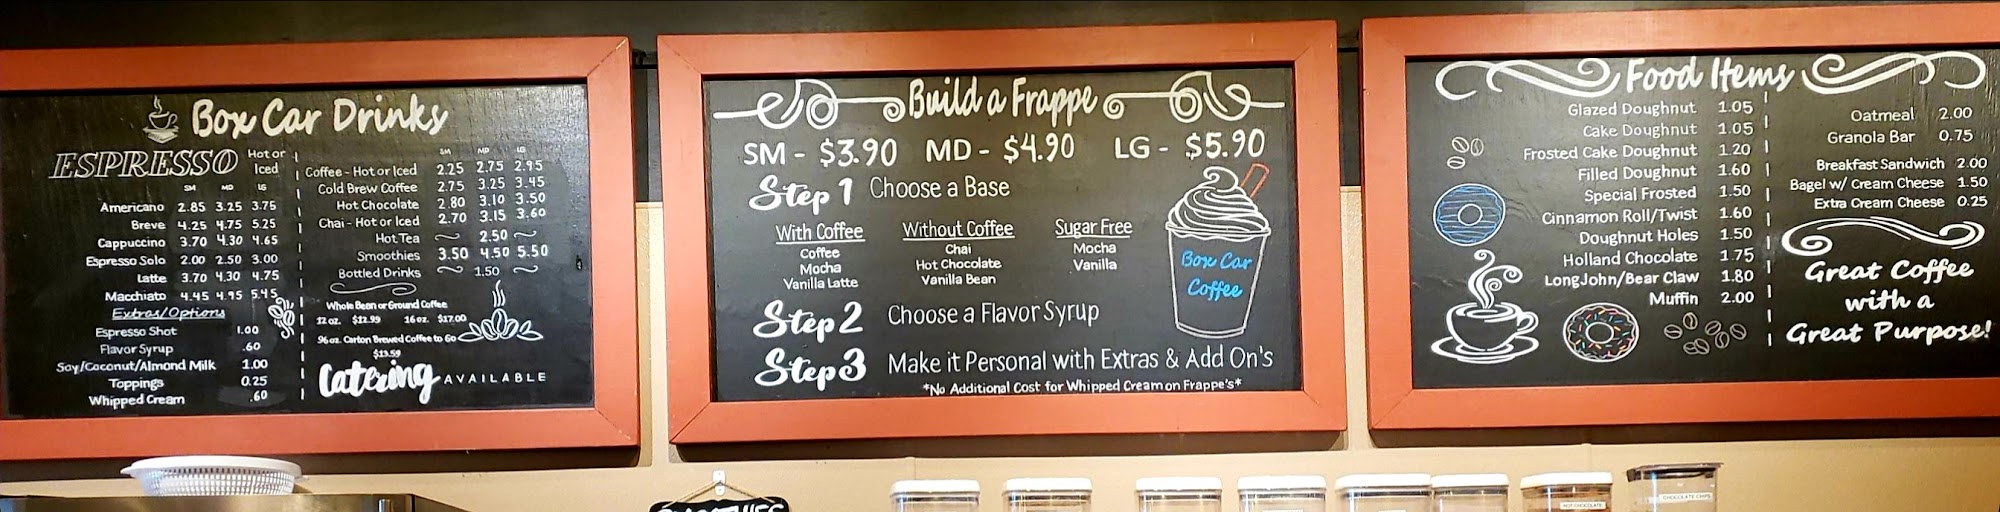 Box Car Drinks
ESPRESSO Hot or Iced
SM MD LG
Americano 2.85 3.25 3.75
Breve 4.25 4.75 5.25
Cappuccino 3.70 4.30 4.65
Espresso Solo 2.00 2.50 3.00
Latte 3.70 4.30 4.75
Macchiato 4.45 4.95 5.45
Extras/Options
Espresso Shot 1.00
Flavor Syrup .60
Soy/Coconut/Almond Milk 1.00
Toppings 0.25
Whipped Cream .60
SM MD LG
Coffee - Hot or Iced 2.25 2.75 2.95
Cold Brew Coffee 2.75 3.25 3.45
Hot Chocolate 2.80 3.10 3.50
Chai - Hot or Iced 2.70 3.15 3.60
Hot Tea ~ 2.50 ~
Smoothies 3.50 4.50 5.50
Bottled Drinks ~ 1.50 ~
Whole Bean or Ground Coffee
12 oz. $12.99 16 oz. $17.00
96 oz. Carton Brewed Coffee to Go
$13.59
Catering AVAILABLE
Build a Frappe
SM - $3.90 MD - $4.90 LG - $5.90
Step 1 Choose a Base
With Coffee
Coffee
Mocha
Vanilla Latte
Without Coffee
Chai
Hot Chocolate
Vanilla Bean
Sugar Free
Mocha
Vanilla
Box Car
Coffee
Step 2 Choose a Flavor Syrup
Step 3 Make it Personal with Extras & Add On's
*No Additional Cost for Whipped Cream on Frappe's*
Food Items
Glazed Doughnut 1.05
Cake Doughnut 1.05
Frosted Cake Doughnut 1.20
Filled Doughnut 1.60
Special Frosted 1.50
Cinnamon Roll/Twist 1.60
Doughnut Holes 1.50
Holland Chocolate 1.75
Long John/Bear Claw 1.80
Muffin 2.00
Oatmeal 2.00
Granola Bar 0.75
Breakfast Sandwich 2.00
Bagel w/ Cream Cheese 1.50
Extra Cream Cheese 0.25
Great Coffee
with a
Great Purpose!
SMOOTHIES
HOT CHOCOLATE
CHOCOLATE CHIPS